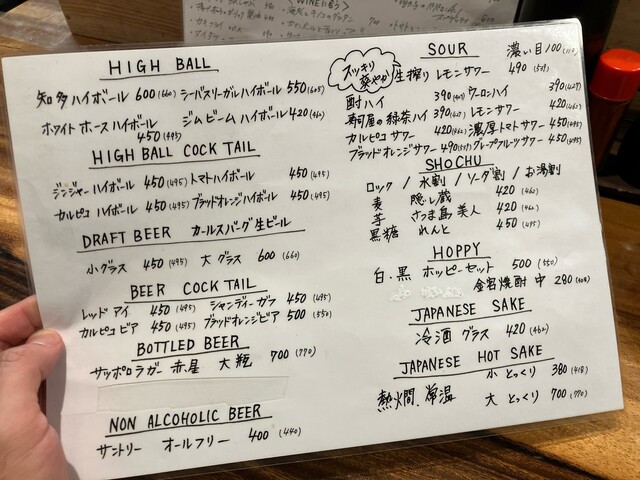 HIGH BALL
知多ハイボール 600(660) シーバスリーガルハイボール 550(605)
ホワイトホースハイボール 450(495) ジムビームハイボール 420(462)
HIGH BALL COCK TAIL
ジンジャーハイボール 450(495) トマトハイボール 450(495)
カルピコハイボール 450(495) ブラッドオレンジハイボール 450(495)
DRAFT BEER カールスバーグ生ビール
小グラス 450(495) 大グラス 600(660)
BEER COCK TAIL
レッドアイ 450(495) シャンディーガフ 450(495)
カルピコビア 450(495) ブラッドオレンジビア 500(550)
BOTTLED BEER
サッポロラガー赤星 大瓶 700(770)
NON ALCOHOLIC BEER
サントリー オールフリー 400(440)
SOUR 濃い目100(110)
スッキリ爽やか 生搾りレモンサワー 490(539)
酎ハイ 390(429) ウーロンハイ 390(429)
寿司屋の緑茶ハイ 390(429) レモンサワー 420(462)
カルピコサワー 420(462) 濃厚トマトサワー 450(495)
ブラッドオレンジサワー 490(539) グレープフルーツサワー 450(495)
SHOCHU
ロック / 水割 / ソーダ割 / お湯割
麦 隠し蔵 420(462)
芋 さつま島美人 420(462)
黒糖 れんと 450(495)
HOPPY
白・黒 ホッピーセット 500(550)
金宮焼酎 中 280(308)
JAPANESE SAKE
冷酒 グラス 420(462)
JAPANESE HOT SAKE
熱燗、常温 小 とっくり 380(418)
大 とっくり 700(770)